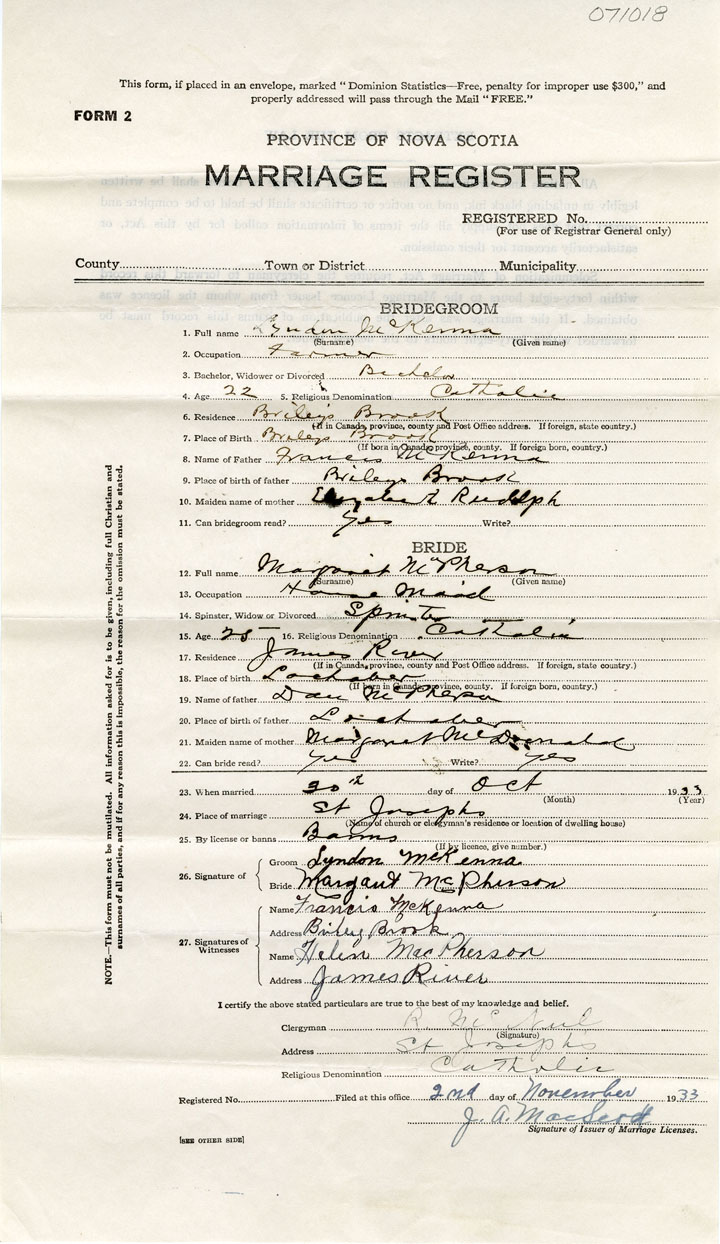 071018
This form, if placed in an envelope, marked “Dominion Statistics—Free, penalty for improper use $300,” and
properly addressed will pass through the Mail “FREE.”
FORM 2
PROVINCE OF NOVA SCOTIA
MARRIAGE REGISTER
REGISTERED No.
(For use of Registrar General only)
County Town or District Municipality
BRIDEGROOM
1. Full name Lyndon McKenna
(Surname) (Given name)
2. Occupation Farmer
3. Bachelor, Widower or Divorced Bachelor
4. Age 22 5. Religious Denomination Catholic
6. Residence Brileys Brook
(If in Canada, province, county and Post Office address. If foreign, state country.)
7. Place of Birth Brileys Brook
(If born in Canada, province, county. If foreign born, country.)
8. Name of Father Francis McKenna
9. Place of birth of father Brileys Brook
10. Maiden name of mother Elizabeth Rudolph
11. Can bridegroom read? Yes Write?
BRIDE
12. Full name Margaret McPherson
(Surname) (Given name)
13. Occupation House Maid
14. Spinster, Widow or Divorced Spinster
15. Age 25 16. Religious Denomination Catholic
17. Residence James River
(If in Canada, province, county and Post Office address. If foreign, state country.)
18. Place of birth Lochaber
(If born in Canada, province, county. If foreign born, country.)
19. Name of father Dan McPherson
20. Place of birth of father Lochaber
21. Maiden name of mother Margaret McDonald
22. Can bride read? Yes Write? Yes
23. When married 30th day of Oct 1933
(Month) (Year)
24. Place of marriage St Josephs
(Name of church or clergyman's residence or location of dwelling house)
25. By license or banns Banns
(If by licence, give number.)
26. Signature of Groom Lyndon McKenna
Bride Margaret McPherson
27. Signatures of Witnesses
Name Francis McKenna
Address Briley Brook
Name Helen MacPherson
Address James River
I certify the above stated particulars are true to the best of my knowledge and belief.
Clergyman R. McNeil
(Signature)
Address St Josephs
Religious Denomination Catholic
Registered No. Filed at this office 2nd day of November 1933
J. A. MacIsaac
Signature of Issuer of Marriage Licenses.
[SEE OTHER SIDE]
NOTE.—This form must not be mutilated. All information asked for is to be given, including full Christian and
surnames of all parties, and if for any reason this is impossible, the reason for the omission must be stated.